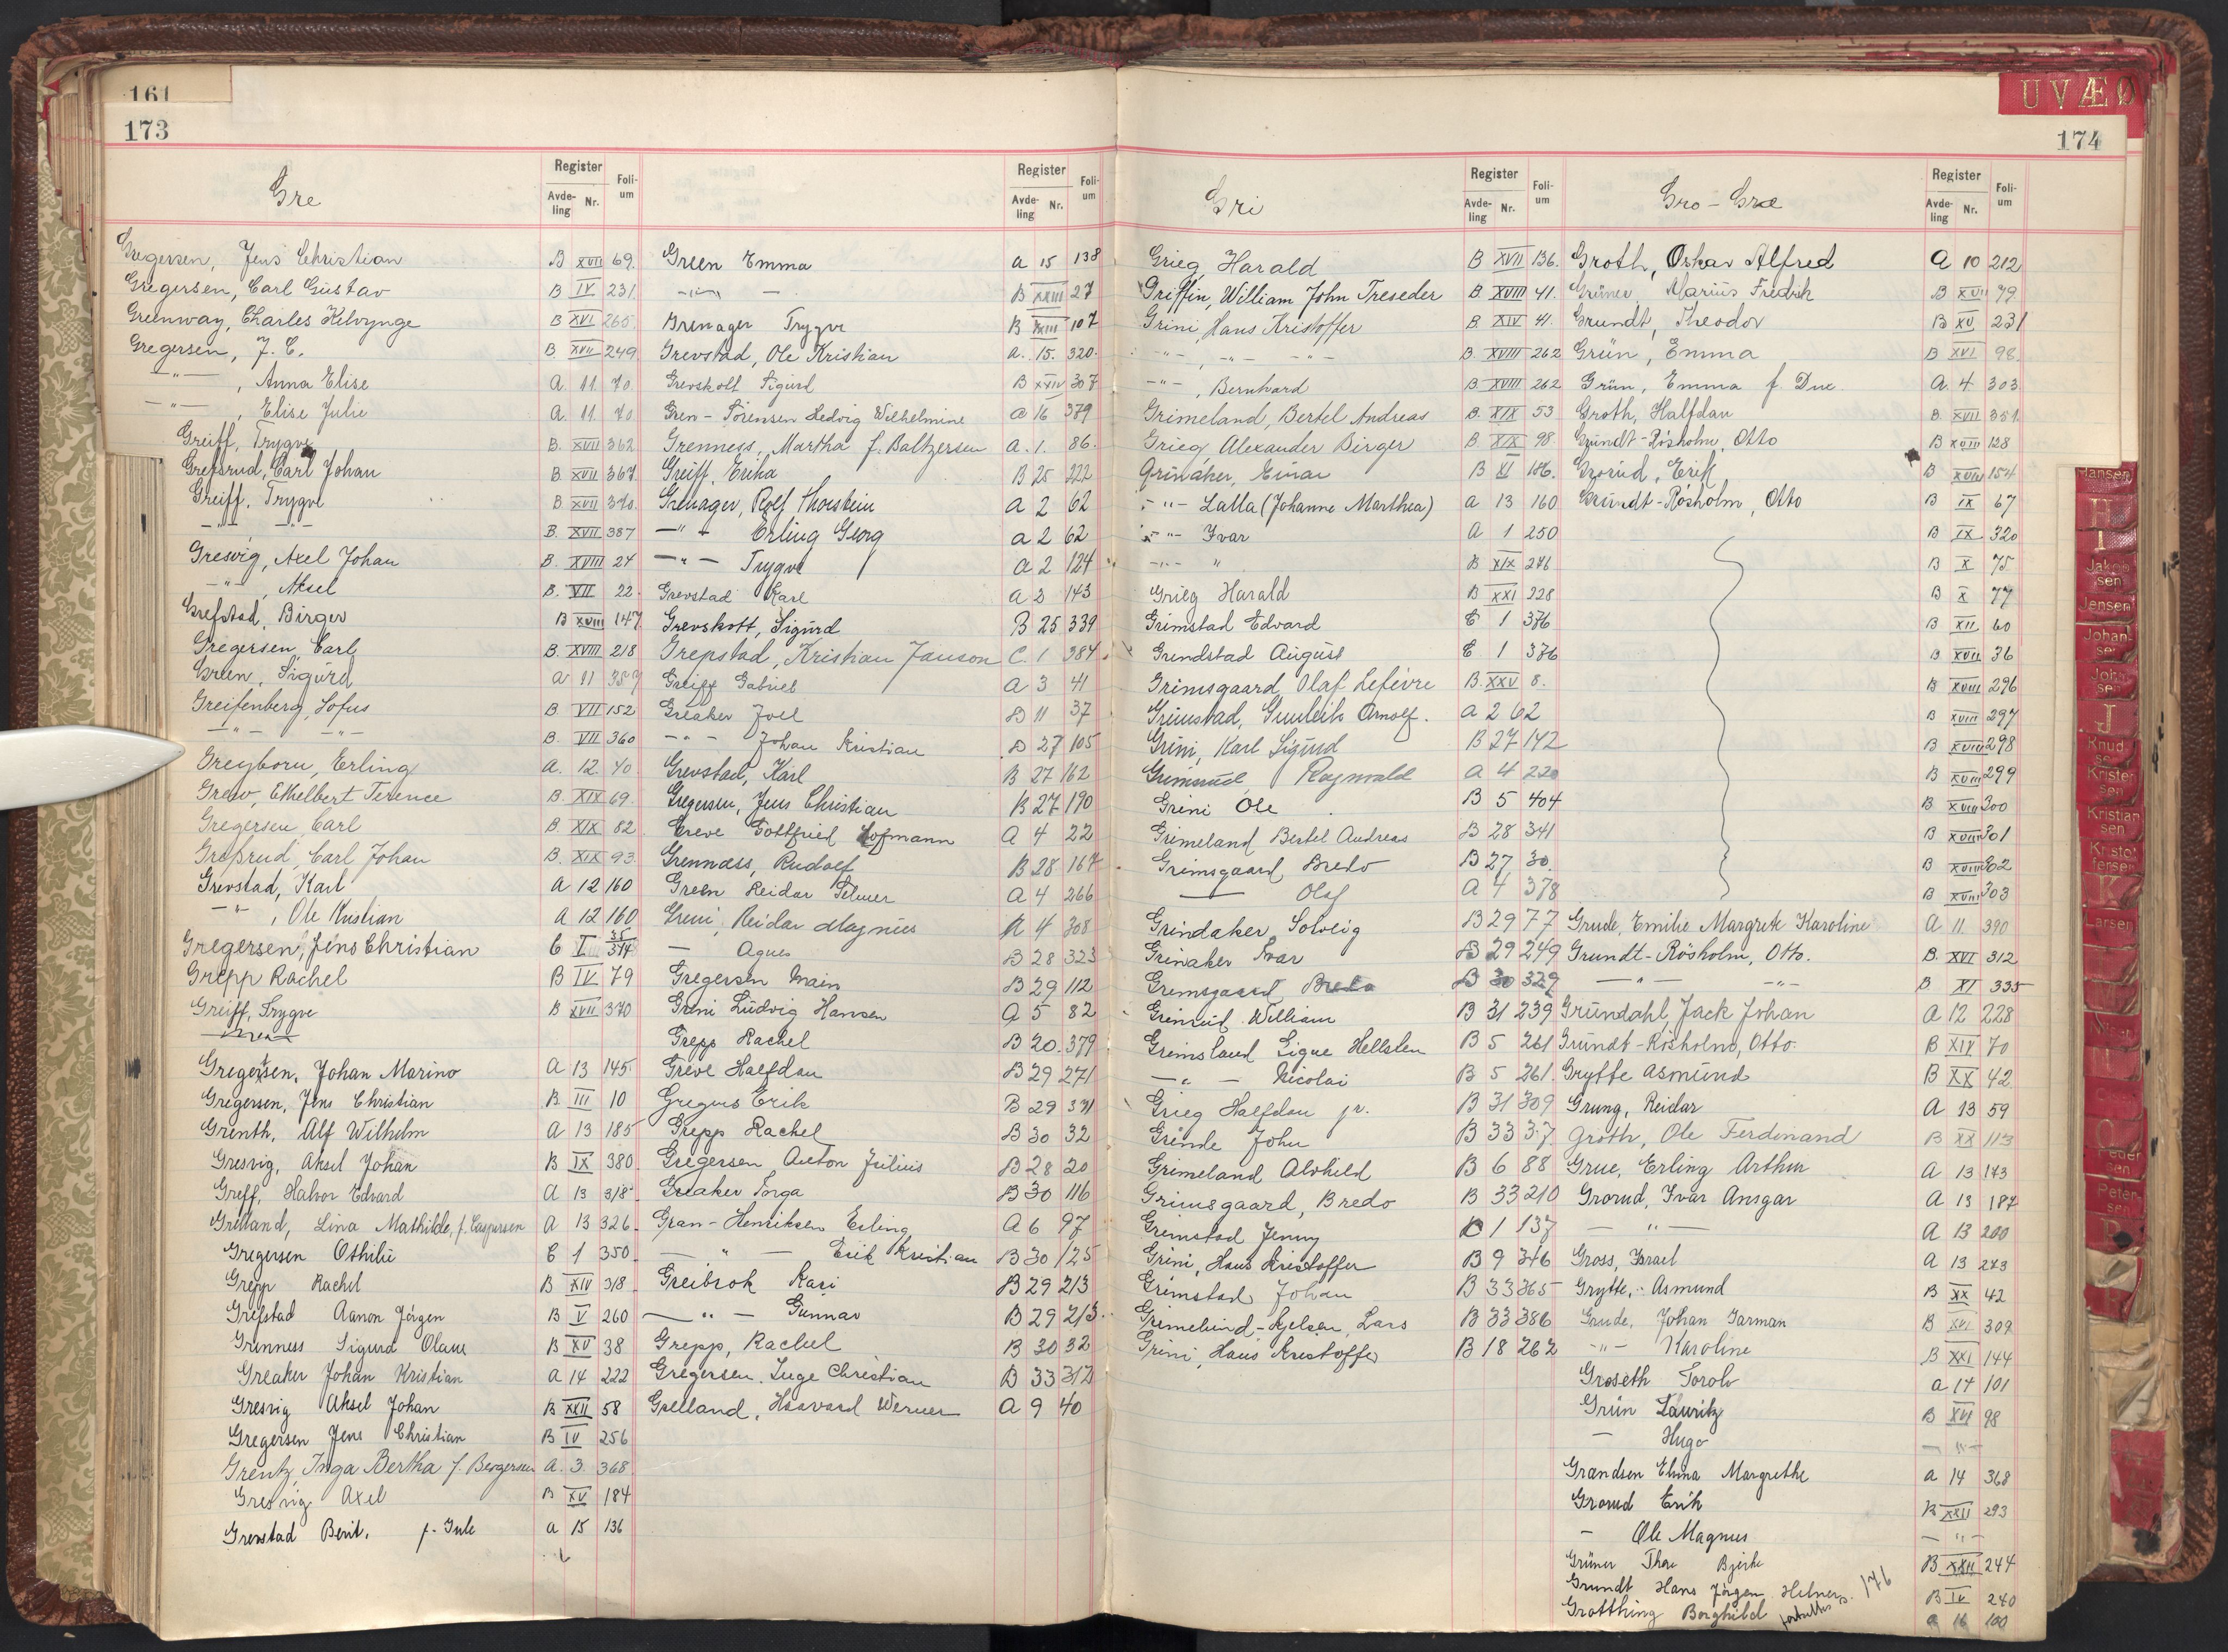 161
173
Gre
Register
Avde-ling Nr. Foli-um
Gregersen, Jens Christian B XVII 69.
Gregersen, Carl Gustav B IV 231
Greenway, Charles Kelvynge B XVI 265
Gregersen, J. C. B. XVII 249
—"— , Anna Elise A. 11. 70.
—"— , Elise Julie A. 11. 70
Greiff, Trygve B. XVII 362
Grefsrud, Carl Johan B. XVII 367.
Greiff, Trygve B. XVII 370.
—"— —"— B. XVII 387
Gresvig, Axel Johan B. XVIII 24
—"— , Aksel B. VII 22
Grefstad, Birger B XVIII 147
Gregersen, Carl B. XVIII 218
Green, Sigurd A 11 357
Greifenberg, Sofus B. VII 152
—"— —"— B. VII 360
Greyborn, Erling A. 12. 40
Grew, Ethelbert Terence B. XIX 69.
Gregersen, Carl B. XIX 82
Grefsrud, Carl Johan B. XIX 93
Grevstad, Karl A 12 160
—"— , Ole Kristian A 12 160
Gregersen, Jens Christian C I 35 374
Grepp Rachel B IV 79
Greiff, Trygve B XVII 370
Gregersen, Johan Marino A 13 145
Gregersen, Jens Christian B III 10
Grenth, Alf Wilhelm A 13 185
Gresvig, Aksel Johan B IX 380
Greff, Halvor Edvard A 13 318
Grelland, Lina Mathilde, f. Caspersen A 13 326
Gregersen Othilie C 1 350
Grepp Rachel B XIV 318
Grefstad Aanon Jörgen B V 260
Grenness Sigurd Olaus B XV 38
Greaker Johan Kristian A 14 222
Gresvig Aksel Johan B XXII 58
Gregersen Jens Christian B IV 256
Grentz, Inga Bertha f. Bergersen A. 3. 368
Gresvig Axel B XV 184
Grevstad Berit. f. Jule a 15 136
Register
Avde-ling Nr. Foli-um
Green Emma a 15 138
—"— — B XXIII 27
Grenager Trygve B XXIII 107
Grevstad, Ole Kristian a. 15. 320.
Grevskott Sigurd B XXIV 307
Gren-Sørensen Hedvig Wilhelmine a 16 379
Grenness, Martha f. Baltzersen a. 1. 86.
Greiff, Erika B 25 222
Grenager, Rolf Thorstein a 2 62
—"— Erling Georg a 2 62
—"— Trygve a 2 124
Grevstad Karl a 2 143
Grevskott, Sigurd B 25 339
Grepstad, Kristian Janson C. 1 384
Greiff Gabriel a 3 41
Greaker Joel B 11 37
—"— Johan Kristian B 27 105
Grevstad, Karl B 27 162
Gregersen, Jens Christian B 27 190
Greve Gottfried Hofmann A 4 22
Grennæss, Rudolf B 28 167
Green Reidar Hilmer A 4 266
Greni, Reidar Magnus A 4 308
— Agnes B 28 323
Gregersen Main B 29 112
Greni Ludvig Hansen A 5 82
Grepp Rachel B 20. 379
Greve Halfdan B 29 271
Gregers Erik B 29 371
Grepp Rachel B 30 32
Gregersen Anton Julius B 28 20
Greaker Torga B 30 116
Gran-Henriksen Erling A 6 97
— " — Erik Kristian B 30 125
Greibrok Kari B 29 213
— " — Gunnar B 29 213
Grepp, Rachel B 30 32
Gregersen, Inge Christian B 33 312
Grelland, Haavard Werner A 9 40
174
UVÆØ
Gri
Register
Avde-ling Nr. Foli-um
Grieg, Harald B XVII 136.
Griffin, William John Treseder B. XVIII 41.
Grini, Hans Kristoffer B. XIV 41.
—"— —"— —"— B. XVIII 262
—"— , Bernhard B. XVIII 262
Grimeland, Bertel Andreas B. XIX 53
Grieg, Alexander Birger B. XIX 98
Grinaker, Einar B XI 186.
—"— Lalla (Johanne Marthea) a 13 160
—"— Ivar A 1 250
—"— " B XIX 276
Grieg Harald B XXI 228
Grimstad Edvard C 1 376
Grindstad August C 1 376
Grimsgaard, Olaf Lefévre B. XXV 8.
Grimstad, Gunleik Arnolf. a 2 62
Grini, Karl Sigurd B 27 142
Grimsrud, Ragnvald A 4 220
Grini Ole B 5 404
Grimeland Bertel Andreas B 28 341
Grimsgaard, Bredo B 27 30
— Olaf A 4 378
Grindaker Solveig B 29 77
Grinaker Ivar B 29 249
Grimsgaard Bredo B 30 329
Grimrud William B 31 239
Grimsland Signe Hellsten B 5 261
—"— Nicolai B 5 261
Grieg Halfdan jr. B 31 309
Grinde John B 33 37
Grimeland Alvhild B 6 88
Grimsgaard, Bredo B 33 210
Grimstad Jenny 1 137
Grini, Hans Kristoffer B 9 346
Grimstad Johan B 33 365
Grimelund-Kjelsen, Lars B 33 386
Grini, Hans Kristoffer B 18 262
Gro - Græ
Register
Avde-ling Nr. Foli-um
Groth, Oskar Alfred A 10 212
Grüner, Marius Fredrik B XVII 79
Grundt, Theodor B XV 231
Grün, Emma B XVI 98.
Grün, Emma f. Due A. 4. 303
Groth, Halfdan B. XVII 351.
Grundt-Rösholm, Otto B XVIII 128
Grorud, Erik B XVIII 154
Grundt-Rösholm, Otto B IX 67
B IX 320
B X 75
B X 77
B XII 60
B XVII 36
B XVIII 296
B XVIII 297
B XVIII 298
B XVIII 299
B XVIII 300
B XVIII 301
B XVIII 302
B XVIII 303
Grude, Emilie Margrete Karoline A 11 390
Grundt-Rösholm, Otto. B. XVI 312
—"— —"— B XI 335
Grundahl, Jack Johan A 12 228
Grundt-Rösholm, Otto. B XIV 70
Grytte Asmund B XX 42
Grung, Reidar A 13 59
Groth, Ole Ferdinand B XX 113
Grue, Erling Arthur A 13 143
Grorud, Ivar Ansgar A 13 187
— " — A 13 200
Gross, Israel A 13 273
Grytte, Asmund B XX 42
Grude, Johan Garman B XVI 309
—"— Karoline B XXI 144
Groseth Torolv a 14 101
Grün Lauritz B XVI 98
— Hugo — " —
Grandsen Elma Margrethe a 14 368
Grorud Erik B XXII 293
— Ole Magnus — " —
Grüner Thore Bjerke B XXII 244
Grundt Hans Jörgen Helner B IV 240
Grotthing Borghild a 16 100
fortsettes s. 176
Hansen
H
I
Jakobsen
Jensen
Johansen
Johnsen
J
Knudsen
Kristensen
Kristiansen
Kristoffersen
K
Larsen
N
O
Pedersen
Petersen
P